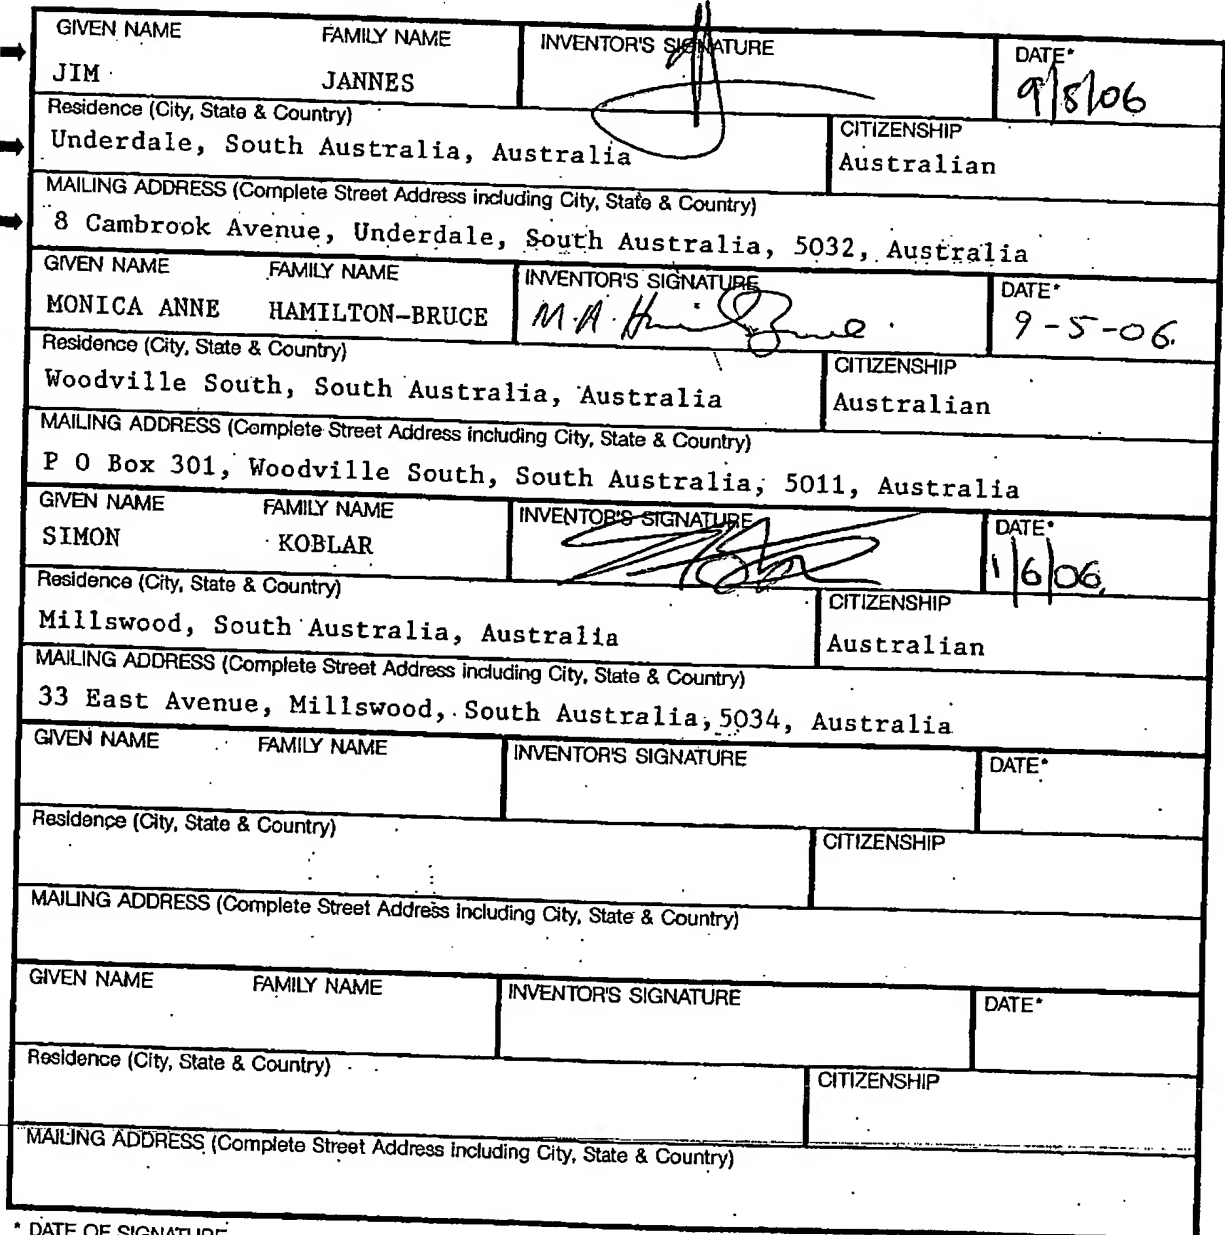 GIVEN NAME FAMILY NAME INVENTOR'S SIGNATURE DATE*
JIM JANNES 9/8/06
Residence (City, State & Country) CITIZENSHIP
Underdale, South Australia, Australia Australian
MAILING ADDRESS (Complete Street Address including City, State & Country)
8 Cambrook Avenue, Underdale, South Australia, 5032, Australia
GIVEN NAME FAMILY NAME INVENTOR'S SIGNATURE DATE*
MONICA ANNE HAMILTON-BRUCE M.A. 9-5-06.
Residence (City, State & Country) CITIZENSHIP
Woodville South, South Australia, Australia Australian
MAILING ADDRESS (Complete Street Address including City, State & Country)
P O Box 301, Woodville South, South Australia, 5011, Australia
GIVEN NAME FAMILY NAME INVENTOR'S SIGNATURE DATE*
SIMON KOBLAR 1/6/06.
Residence (City, State & Country) CITIZENSHIP
Millswood, South Australia, Australia Australian
MAILING ADDRESS (Complete Street Address including City, State & Country)
33 East Avenue, Millswood, South Australia, 5034, Australia
GIVEN NAME FAMILY NAME INVENTOR'S SIGNATURE DATE*
Residence (City, State & Country) CITIZENSHIP
MAILING ADDRESS (Complete Street Address including City, State & Country)
GIVEN NAME FAMILY NAME INVENTOR'S SIGNATURE DATE*
Residence (City, State & Country) CITIZENSHIP
MAILING ADDRESS (Complete Street Address including City, State & Country)
* DATE OF SIGNATURE